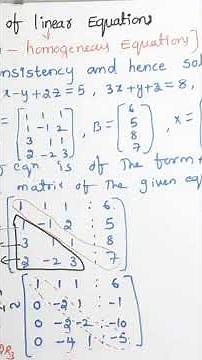 of linear Equations
- homogeneous Equation]
nsistency and hence sol
x-y+2z=5, 3x+y+z=8,
= [1 1 1 , B = [6 , x = [
1 -1 2 5
3 1 1 8
2 -2 3] 7]
eqⁿ is of The form
matrix of the given eq
1 1 1 : 6
1 -1 2 : 5
3 1 1 : 8
2 -2 3 : 7
~ 1 1 1 : 6
0 -2 1 : -1
0 -2 -2 : -10
0 -4 1 : -5